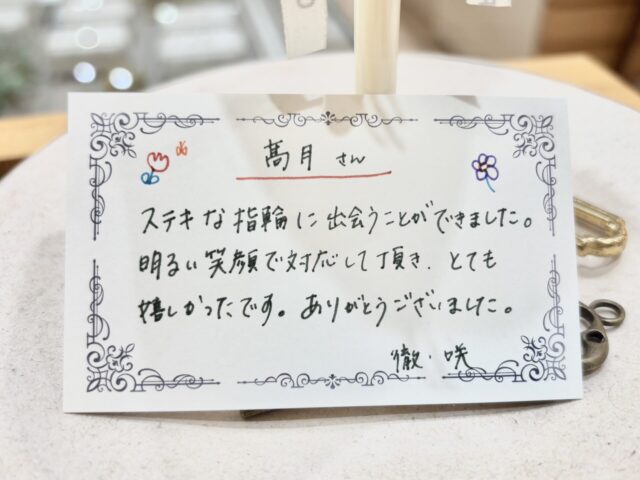 髙月 さん
ステキな指輪に出会うことができました。
明るい笑顔で対応して頂き、とても
嬉しかったです。ありがとうございました。
徹・咲